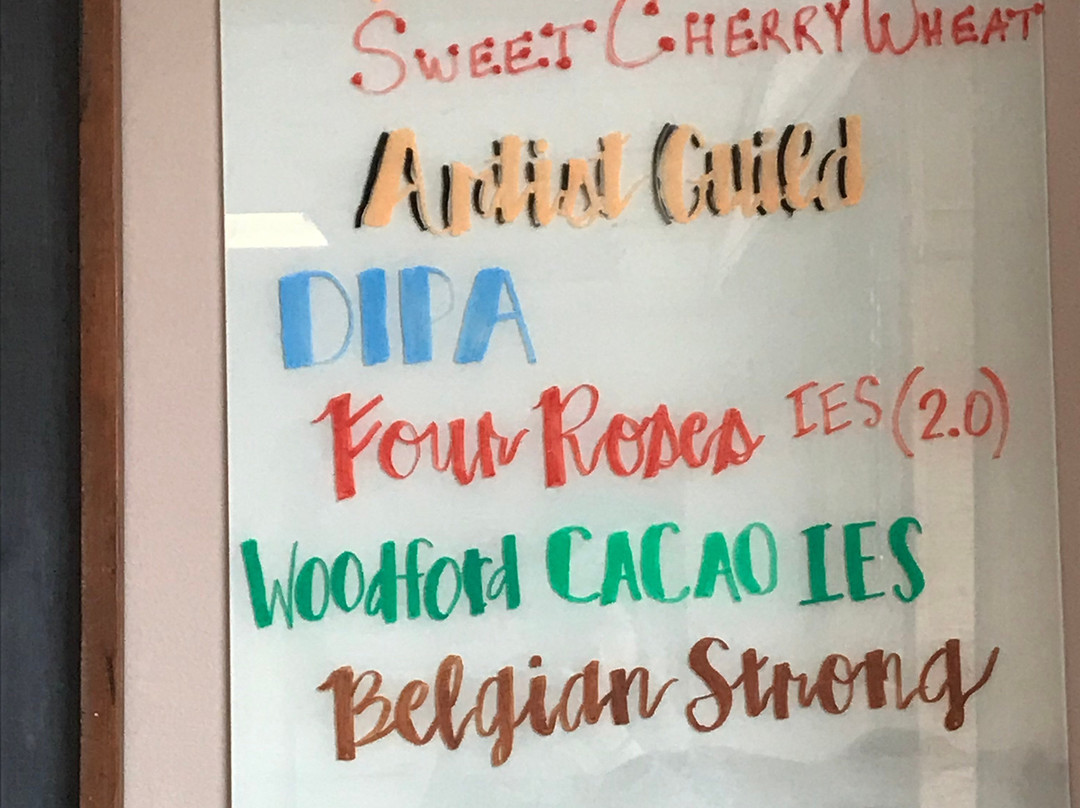 SWEET CHERRY WHEAT
Artist Guild
DIPA
Four Roses IES (2.0)
Woodford CACAO IES
Belgian Strong